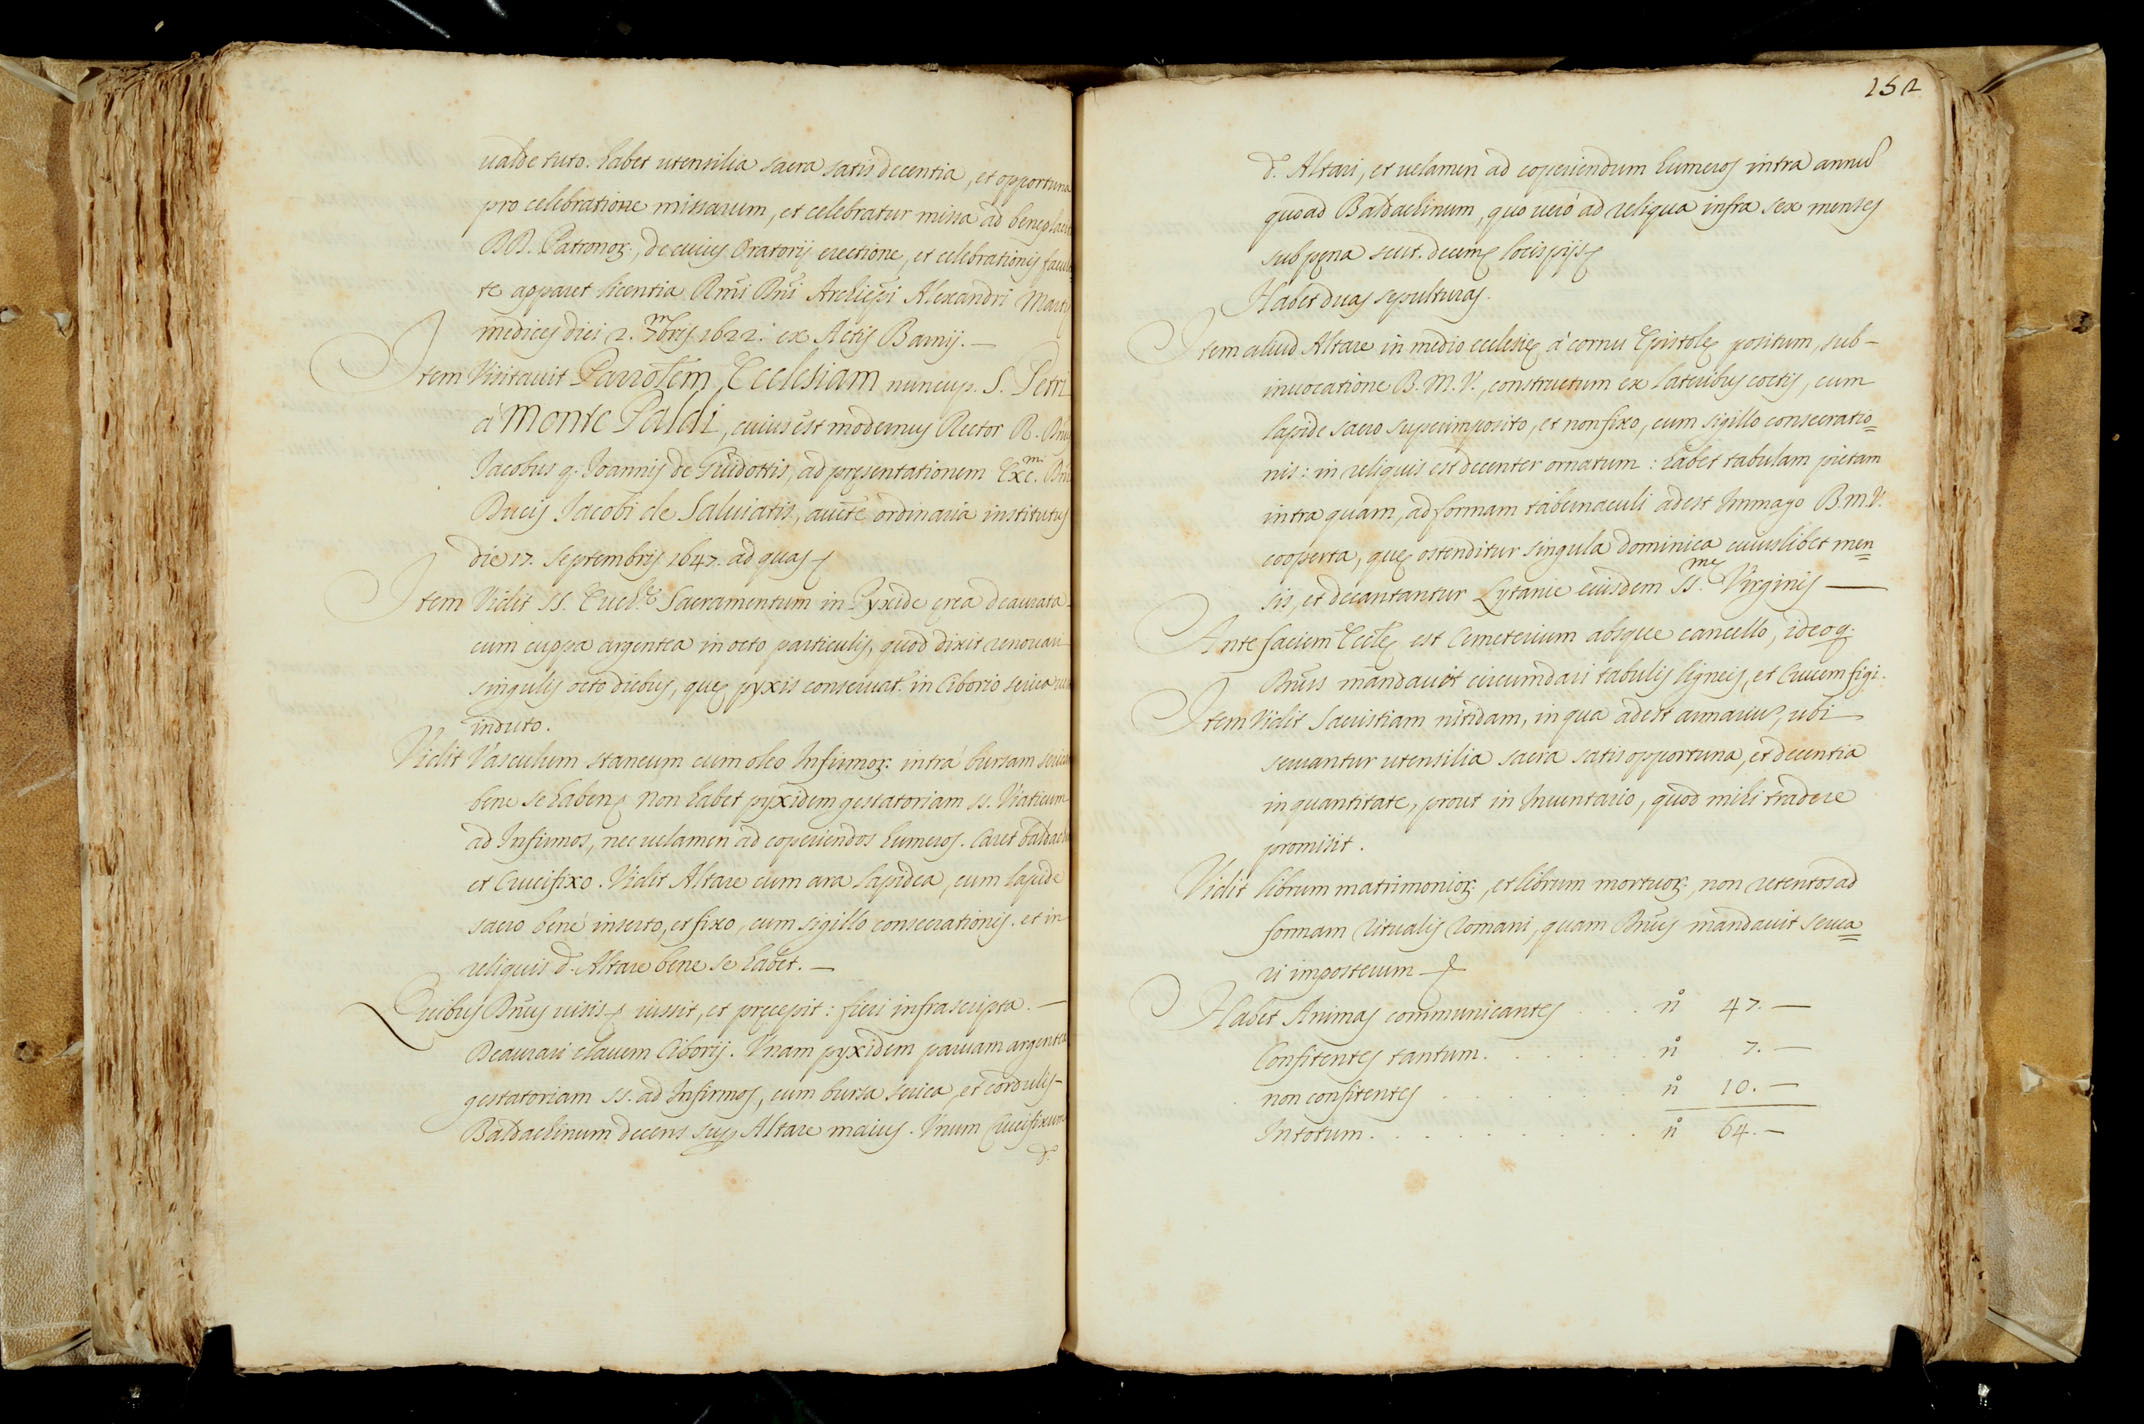 ualde tuto. habet utensilia sacra satis decentia, et opportuna
pro celebratione missarum, et celebratur missa ad beneplacit
DD. Patronoꝝ, de cuius Oratorij erectione, et celebrationis facul
te apparet licentia Rmi Dni Archiepi Alexandri Martij
medices diei 2. 7mbris 1622. ex Actis Barnij. —
Item Visitauit Parrolem Ecclesiam nuncup. S. Petri
à Monte Paldi, cuius est modernus Rector R. Dnus
Jacobus q. Joannis de Guidottis, ad pręsentationem Exc.mi Dni
Ducis Jacobi de Saluiatis, aucte ordinaria institutus
die 17. Septembris 1647. ad quas
Item Vidit SS. Euch.ę Sacramentum in Pyxide ęrea deaurata
cum cuppa argentea in octo particulis, quod dixit renouari
singulis octo diebus, quę pyxis conseruat. in Ciborio serico
induto.
Vidit Vasculum staneum cum oleo Infirmoꝝ intra bursam sericam
bene se habens Non habet pyxidem gestatoriam SS. Viaticum
ad Infirmos, nec uelamen ad coperiendos humeros. Caret baldach
et Crucifixo. Vidit Altare cum ara lapidea, cum lapide
sacro bene inserto, et fixo, cum sigillo consecrationis. et in
reliquis d. Altare bene se habet. —
Quibus Dnus uisis iussit, et pręcepit: fieri infrascripta. —
Deaurari clauem Ciborij. Vnam pyxidem paruam argentea
gestatoriam SS. ad Infirmos, cum bursa serica, et cordulis-
Baldachinum decens sup Altare maius. Vnum Crucifixum
d.
152
d. Altari, et uelamen ad coperiendum humeros intra annu
quoad Baldachinum, quo uerò ad reliqua infra sex menses
sub pęna scut. decem locis pijs
Habet duas sepulturas.
Item aliud Altare in medio ecclesię à cornu Epistolę positum, sub-
inuocatione B. M. V., constructum ex lateribus coctis, cum
lapide sacro superimposito, et non fixo, cum sigillo consecratio=
nis: in reliquis est decenter ornatum: habet tabulam pictam
intra quam, ad formam tabernaculi adest Immago B. M. V.
cooperta, quę ostenditur singula dominica cuiuslibet men=
sis, et decantantur Lytanie eiusdem SS.mę Virginis —
Ante faciem Ecclę est Cimeterium absque cancello, ideoq.
Dnus mandauit circumdari tabulis ligneis, et Crucem figi.
Item Vidit Sacristiam nitidam, in qua adest armariu, ubi
seruantur utensilia sacra satis opportuna, et decentia
in quantitate, prout in Inuentario, quod mihi tradere
promisit.
Vidit librum matrimonioꝝ, et librum mortuoꝝ, non retentos ad
formam Ritualis Romani, quam Dnus mandauit serua=
ri imposterum
Habet Animas communicantes . . . . nº 47. —
Confitentes tantum . . . . . . . nº 7. —
non confitentes . . . . . . . . . nº 10. —
In totum . . . . . . . . . . . nº 64. —